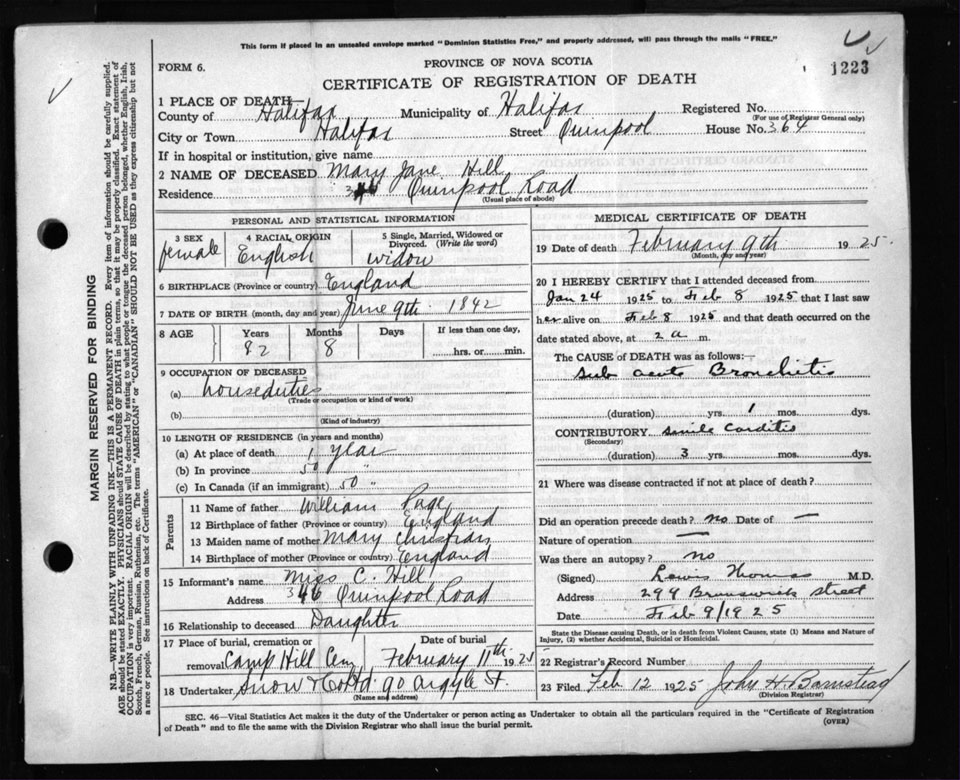 This form if placed in an unsealed envelope marked "Dominion Statistics Free," and properly addressed, will pass through the mails "FREE."
FORM 6.
PROVINCE OF NOVA SCOTIA
1223
CERTIFICATE OF REGISTRATION OF DEATH
1 PLACE OF DEATH—
County of Halifax Municipality of Halifax Registered No.
(For use of Registrar General only)
City or Town Halifax Street Quinpool House No. 364
If in hospital or institution, give name
2 NAME OF DECEASED Mary Jane Hill
Residence Quinpool Road
(Usual place of abode)
PERSONAL AND STATISTICAL INFORMATION
3 SEX 4 RACIAL ORIGIN 5 Single, Married, Widowed or Divorced. (Write the word)
female English widow
6 BIRTHPLACE (Province or country) England
7 DATE OF BIRTH (month, day and year) June 9th 1842
8 AGE Years Months Days If less than one day,
82 8 hrs. or min.
9 OCCUPATION OF DECEASED
(a) houseduties
(Trade or occupation or kind of work)
(b)
(Kind of industry)
10 LENGTH OF RESIDENCE (in years and months)
(a) At place of death 1 year
(b) In province 50 "
(c) In Canada (if an immigrant) 50 "
Parents
11 Name of father William Page
12 Birthplace of father (Province or country) England
13 Maiden name of mother Mary Christian
14 Birthplace of mother (Province or country) England
15 Informant's name Miss C. Hill
Address Quinpool Road
16 Relationship to deceased Daughter
17 Place of burial, cremation or removal Camp Hill Cem Date of burial February 11th 1925
18 Undertaker Snow & Co Ltd 90 Argyle St.
(Name and address)
MEDICAL CERTIFICATE OF DEATH
19 Date of death February 9th 1925.
(Month, day and year)
20 I HEREBY CERTIFY that I attended deceased from
Jan 24 1925 to Feb 8 1925 that I last saw
her alive on Feb 8 1925 and that death occurred on the
date stated above, at 2 a m.
The CAUSE of DEATH was as follows:—
Sub acute Bronchitis
(duration) yrs. 1 mos. dys.
CONTRIBUTORY senile Carditis
(Secondary)
(duration) 3 yrs. mos. dys.
21 Where was disease contracted if not at place of death?
Did an operation precede death? no Date of —
Nature of operation —
Was there an autopsy? no
(Signed) Lewis Thomas M.D.
Address 299 Brunswick street
Date Feb 9/1925
State the Disease causing Death, or in death from Violent Causes, state (1) Means and Nature of
Injury, (2) whether Accidental, Suicidal or Homicidal.
22 Registrar's Record Number
23 Filed Feb 12 1925 John H. Barnstead
(Division Registrar)
SEC. 46—Vital Statistics Act makes it the duty of the Undertaker or person acting as Undertaker to obtain all the particulars required in the "Certificate of Registration
of Death" and to file the same with the Division Registrar who shall issue the burial permit.
(OVER)
MARGIN RESERVED FOR BINDING
N.B.—WRITE PLAINLY WITH UNFADING INK—THIS IS A PERMANENT RECORD. Every item of information should be carefully supplied.
AGE should be stated EXACTLY. PHYSICIANS should STATE CAUSE OF DEATH in plain terms, so that it may be properly classified. Exact statement of
OCCUPATION is very important. RACIAL ORIGIN will be described by stating to what people or tongue the deceased person belonged, whether English, Irish,
Scotch, French, German, Russian, Ruthenian, etc. The terms "AMERICAN" or "CANADIAN" SHOULD NOT BE USED as they express citizenship but not
a race or people. See instructions on back of Certificate.